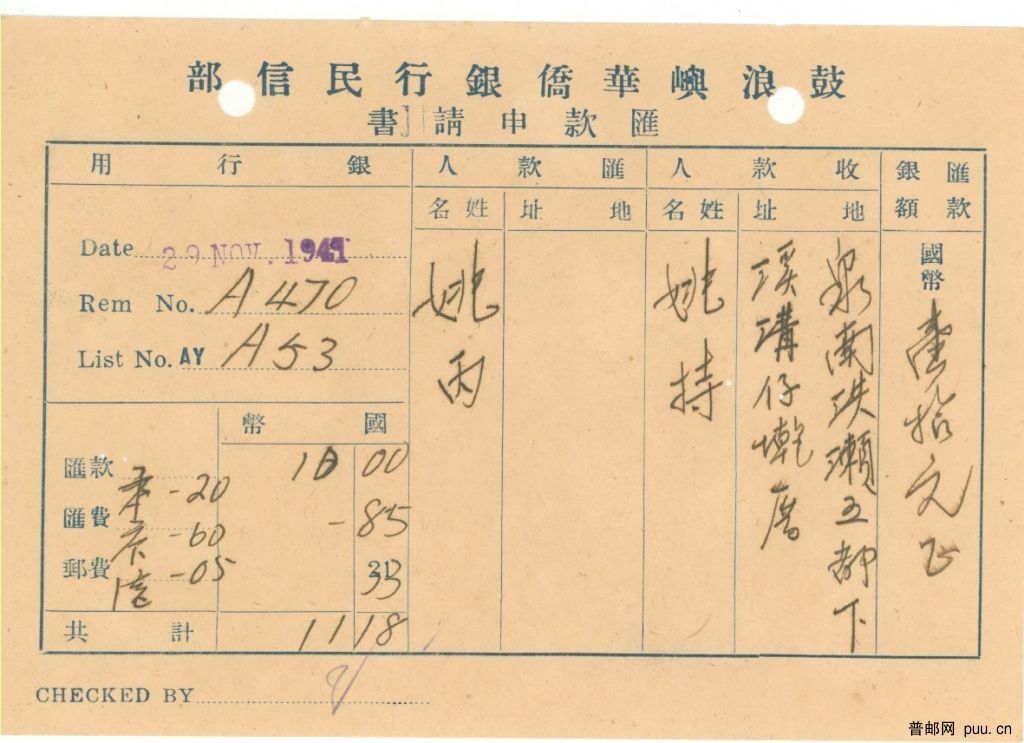 鼓浪嶼華僑銀行民信部
匯款申請書
匯款銀額
國幣壹拾元正
收款人
地址
泉南洪瀨五都下
溪溝仔墘厝
姓名
姚持
匯款人
地址
姓名
姚丙
銀行用
Date 29 NOV. 1941
Rem No. A 470
List No. AY A 53
國幣
匯款 10 00
匯費 -20 -85
-60
郵費 -05 33
共計 11 18
CHECKED BY
普邮网 puu.cn